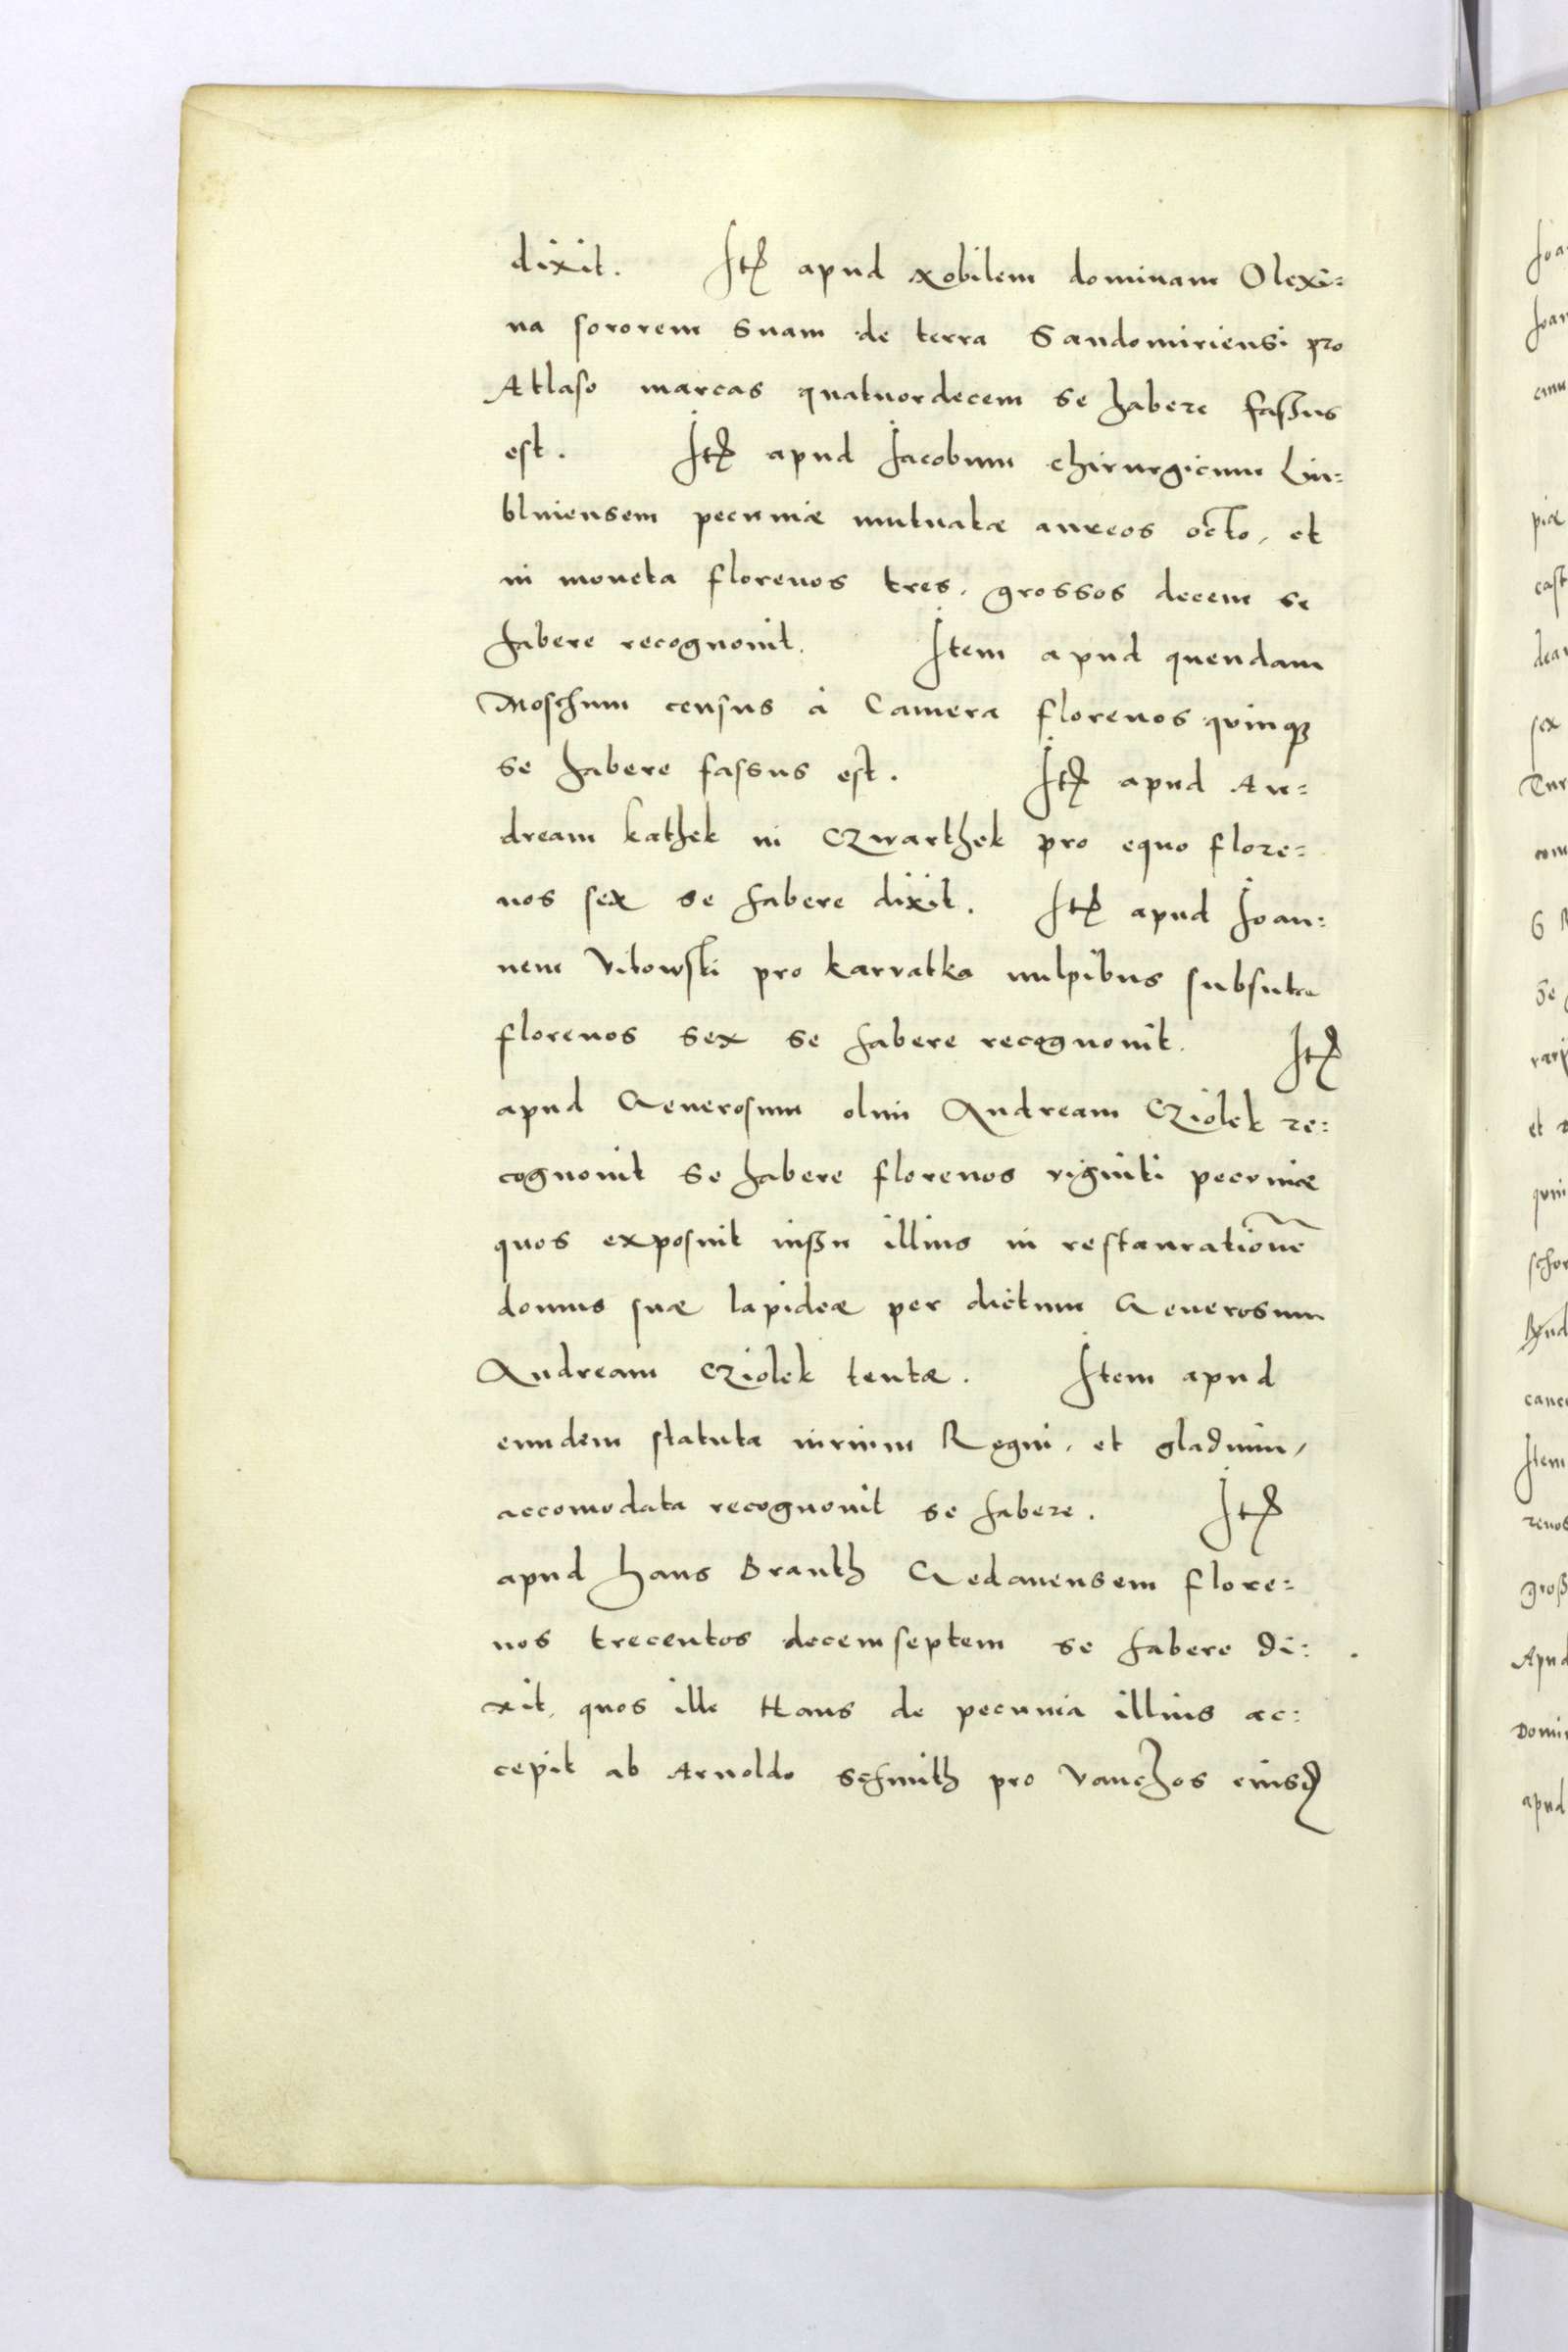 dixit. Itꝫ apud Nobilem dominam Olexi=
na sororem suam de terra Sandomiriensi pro
Atlaso marcas quatuordecem se habere faßus
est. Itꝫ apud Jacobum chirurgicum Lu=
bliniensem pecuniæ mutuatæ aureos octo, et
in moneta florenos tres, grossos decem se
habere recognouit. Item apud quendam
Moschum census à Camera florenos quinqꝫ
se habere fassus est. Itꝫ apud An=
dream kathek in Czwarthek pro equo flore=
nos sex se habere dixit. Itꝫ apud Joan=
nem Vitowski pro karvatka uulpibus subsuta
florenos sex se habere recognouit. Itꝫ
apud Generosum olim Andream Cziolek re=
cognouit se habere florenos viginti pecuniæ
quos exposuit iußu illius in restaurationē
domus suæ lapideæ per dictum Generosum
Andream Cziolek tentæ. Item apud
eundem statuta iurium Regni, et gladium,
accomodata recognouit se habere. Itꝫ
apud Hans Branth Gedanensem flore=
nos trecentos decemseptem se habere di=
xit, quos ille Hans de pecunia illius ac=
cepit ab Arnoldo schmith pro vanchos eiusd
Joa
Joan
pie
cast
sex
Tur
et
quin
Item
renos
groß
Apud
Domi
apud